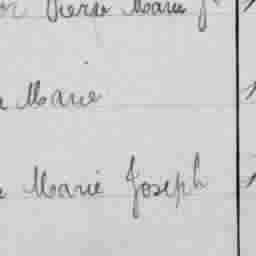 Pierre Marie J
Marie
Marie Joseph